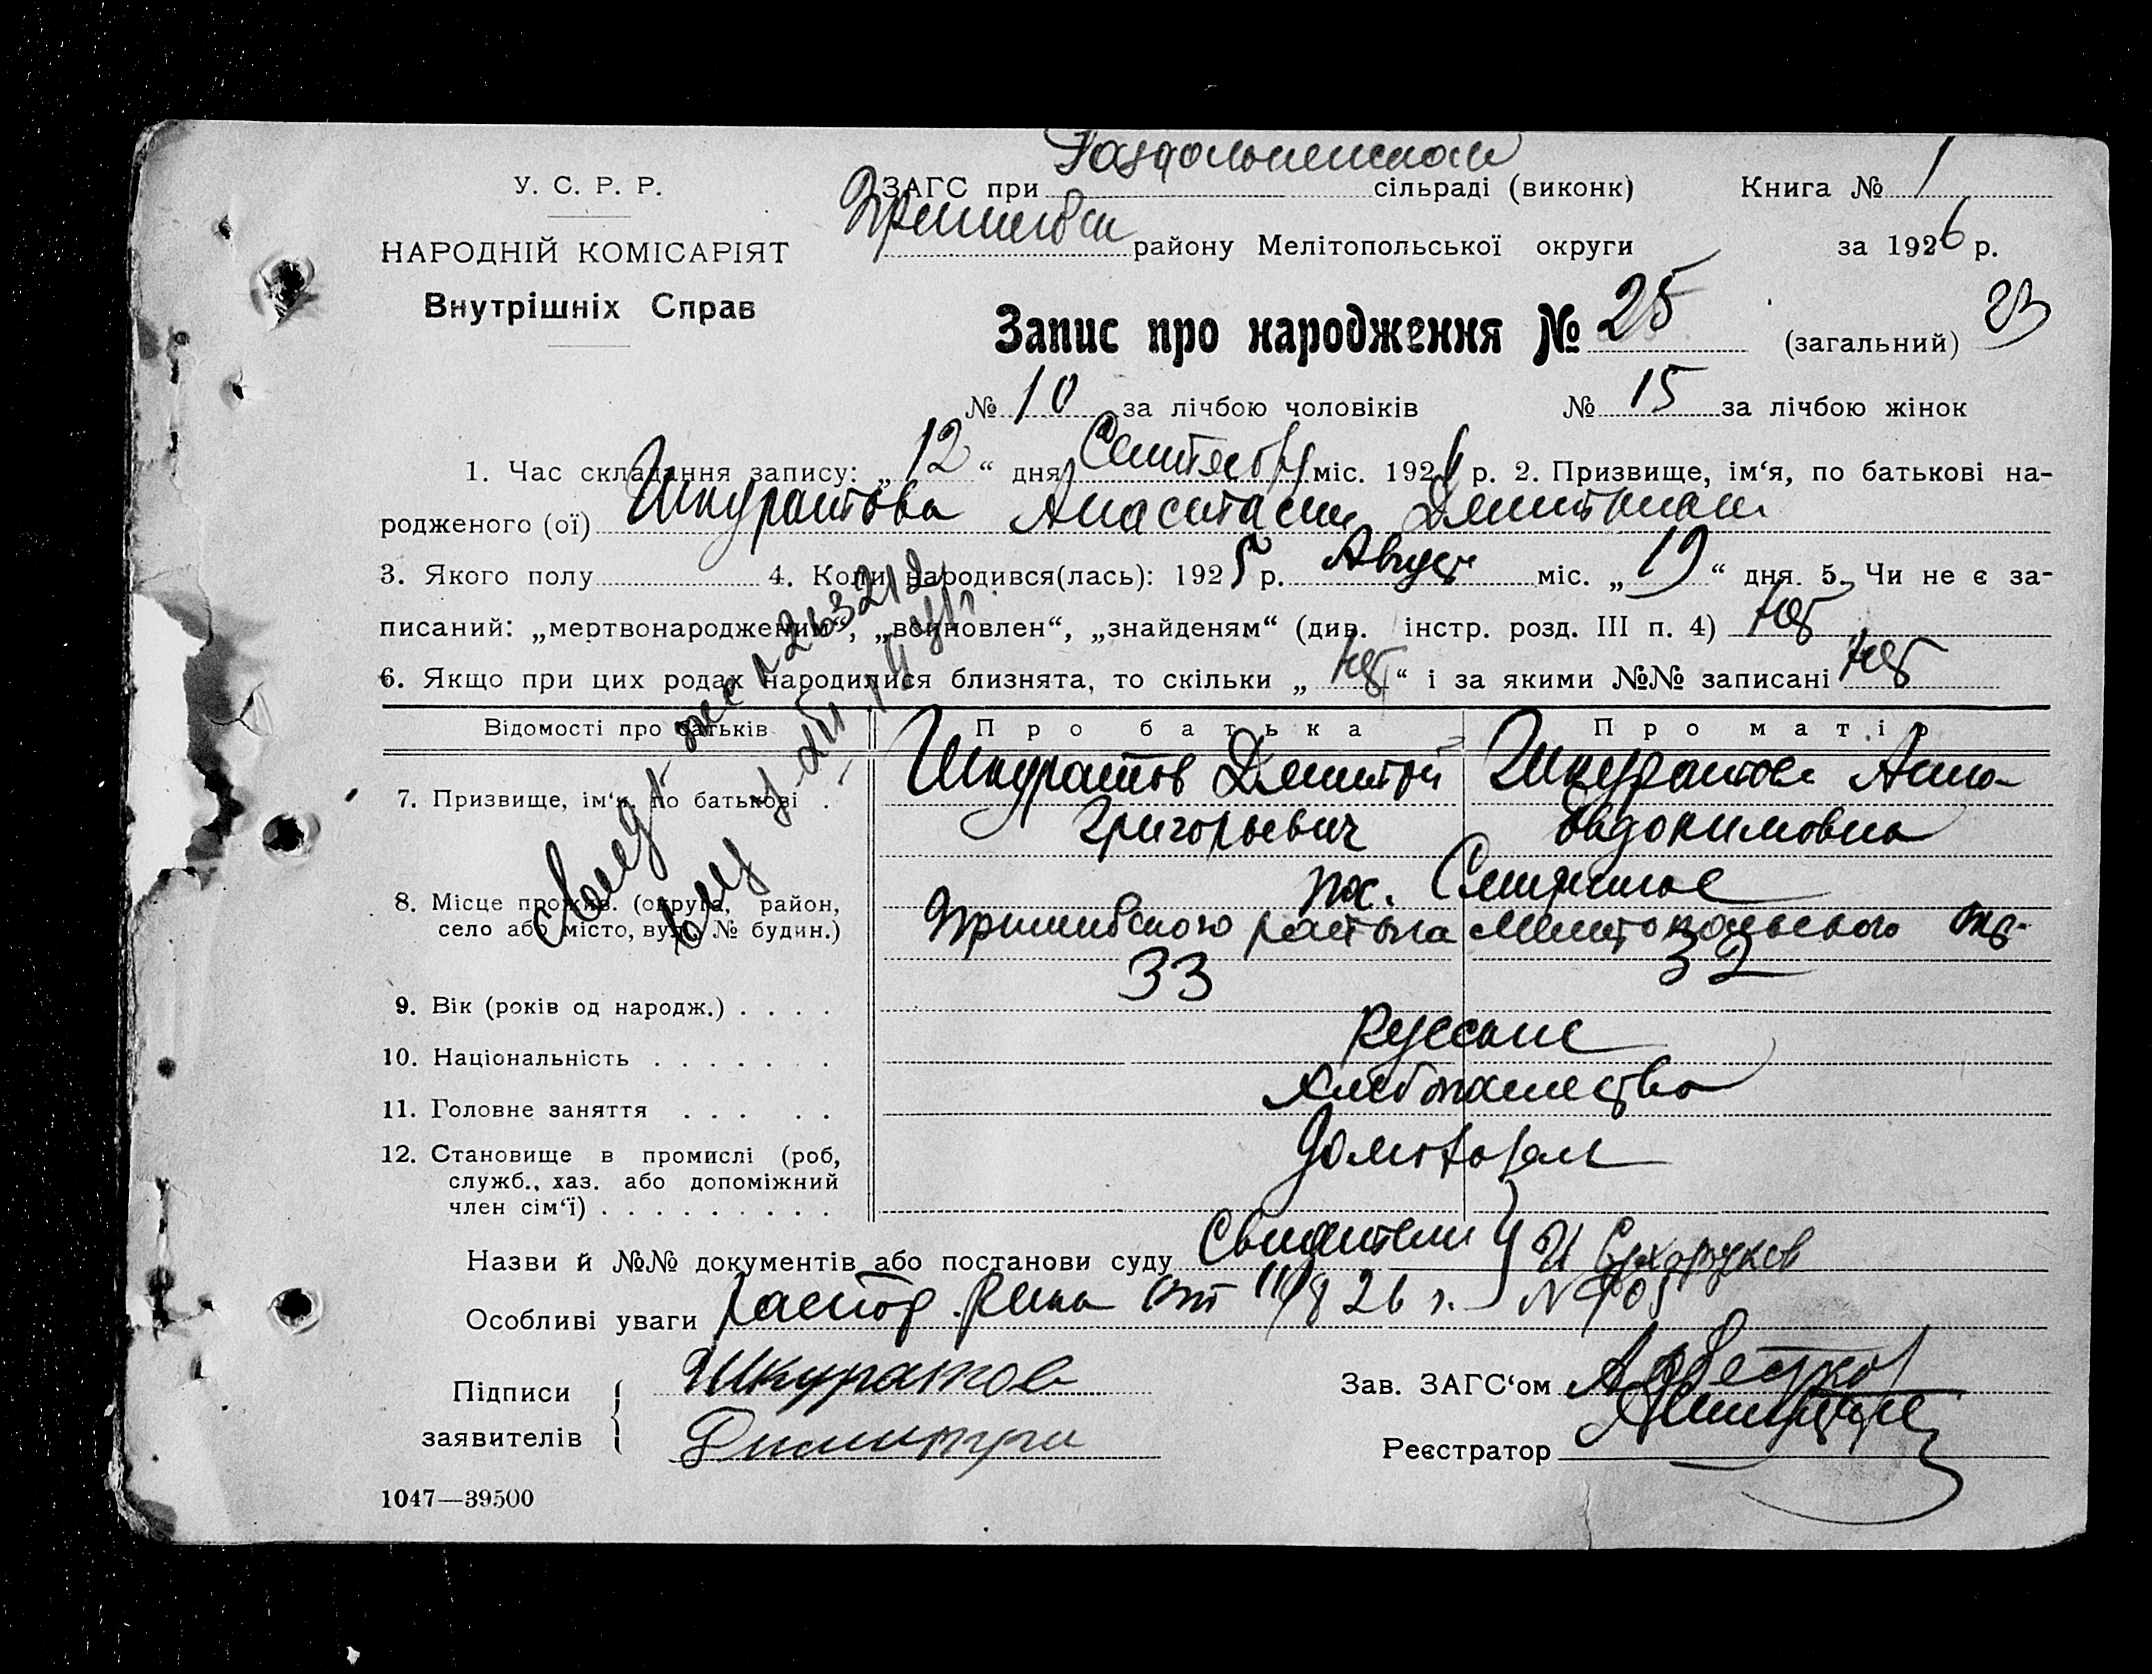 У. С. Р. Р.
НАРОДНІЙ КОМІСАРІЯТ
Внутрішніх Справ
ЗАГС при Раздольненском сільраді (виконк) Книга № 1
Пришибск району Мелітопольської округи за 1926 р.
Запис про народження № 25 (загальний) 23
№ 10 за лічбою чоловіків № 15 за лічбою жінок
1. Час складання запису: „12“ дня Сентября міс. 1926 р. 2. Призвище, ім‘я, по батькові на-
родженого (ої) Шкуратова Анастасия
3. Якого полу 4. Коли народився(лась): 1925 р. Август міс. „19“ дня. 5. Чи не є за-
писаний: „мертвонародженим“, „всиновлен“, „знайденям“ (див. інстр. розд. III п. 4) нет
6. Якщо при цих родах народилися близнята, то скільки „нет“ і за якими №№ записані нет
Відомості про батьків Про батька Про матір
7. Призвище, ім‘я, по батькові . Шкуратов Дмитрий Шкуратова Анна
Григорьевич Евдокимовна
8. Місце прожив. (округа, район,
село або місто, вул., № будин.) Пришибского района Мелитопольского окр.
9. Вік (років од народж.) . . . . 33 32
10. Національність . . . . . . . Русские
11. Головне заняття . . . . . Хлебопашество
12. Становище в промислі (роб,
служб., хаз. або допоміжний
член сім‘ї) . . . . . . . . .
Назви й №№ документів або постанови суду Свидетели И Сухоруков
Особливі уваги от 11/8 26 г. №
Підписи Шкуратов Зав. ЗАГС‘ом
заявителів Димитри Реєстратор
1047—39500